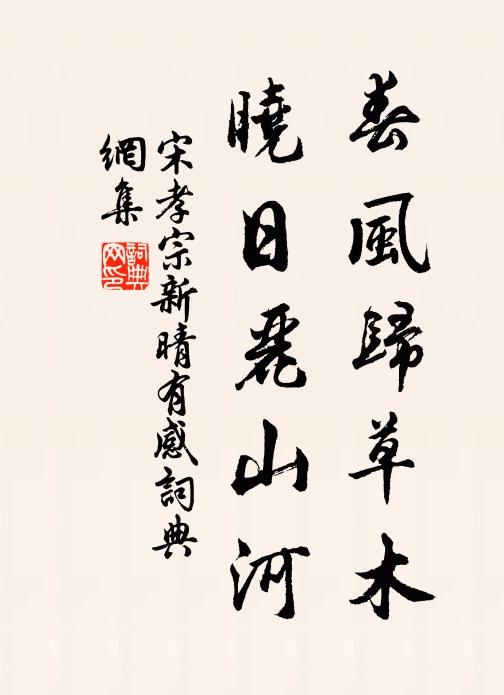 春風歸草木
曉日麗山河
宋孝宗新晴有感詞典
網集
詞典
网印